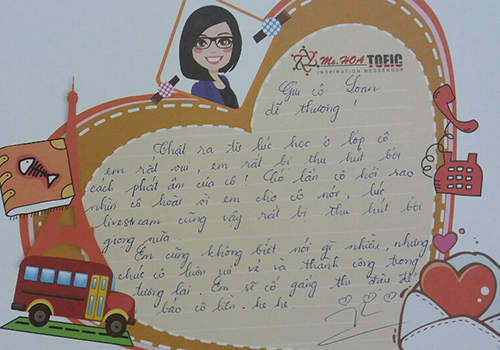 Ms. HOA TOEIC
INSPIRATION MESSENGER
Gửi cô Loan
dễ thương!
Thật ra từ lúc học ở lớp cô
em rất vui, em rất bị thu hút bởi
cách phát âm của cô! Có lần cô hỏi sao
nhìn cô hoài vì em chờ cô nói, lúc
livestream cũng vậy rất bị thu hút bởi
giọng nữa.
Em cũng không biết nói gì nhiều, nhưng
chúc cô luôn vui vẻ và thành công trong
tương lai. Em sẽ cố gắng thi đậu để
báo cô liền. he he